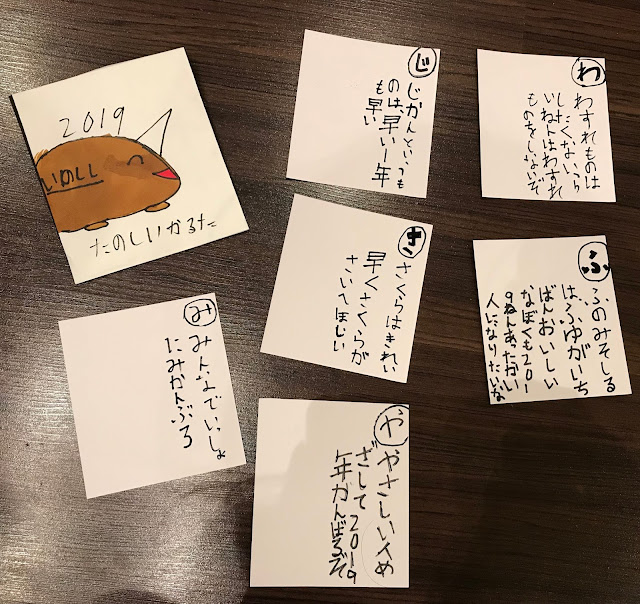 2019
いのしし
たのしいかるた
じ
じかんというも
のは、早い一年
も早い
わ
わすれものは
したくないら
いねんはわすれ
ものをしないぞ
さ
さくらはきれい
早くさくらが
さいてほしい
ふ
ふのみそしる
はふゆがいち
ばんおいしい
なぼくも201
9ねんあったかい
人になりたいな
み
みんなでいっしょ
にみかんぶろ
や
やさしい人め
ざして2019
年がんばるぞ